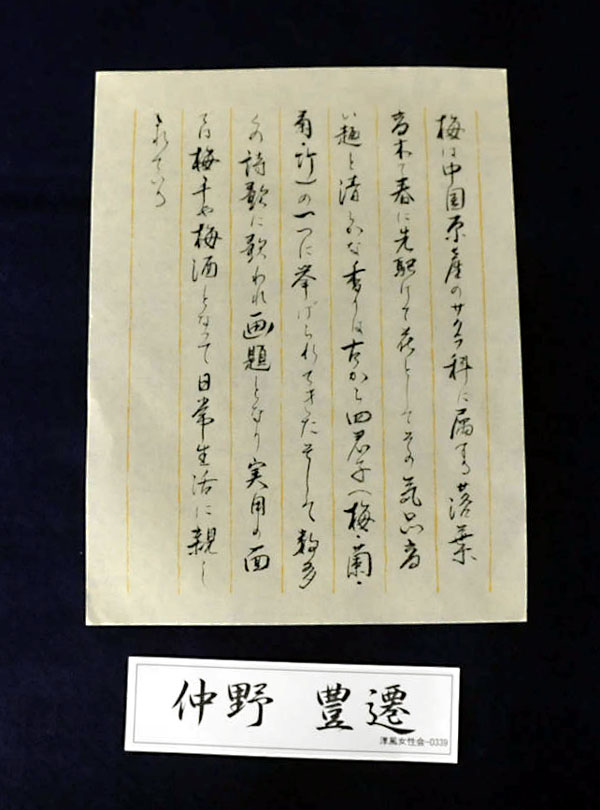 梅は中国原産のサクラ科に属する落葉
高木で春に先駆けて花としてその気品高
い趣と清らかな香りは古から四君子(梅・蘭・
菊・竹)の一つに挙げられてきたそして数多
くの詩歌に歌われ画題となり実用の面
では梅干や梅酒となって日常生活に親し
まれている
仲野 豊遷
洋風女性会-0339